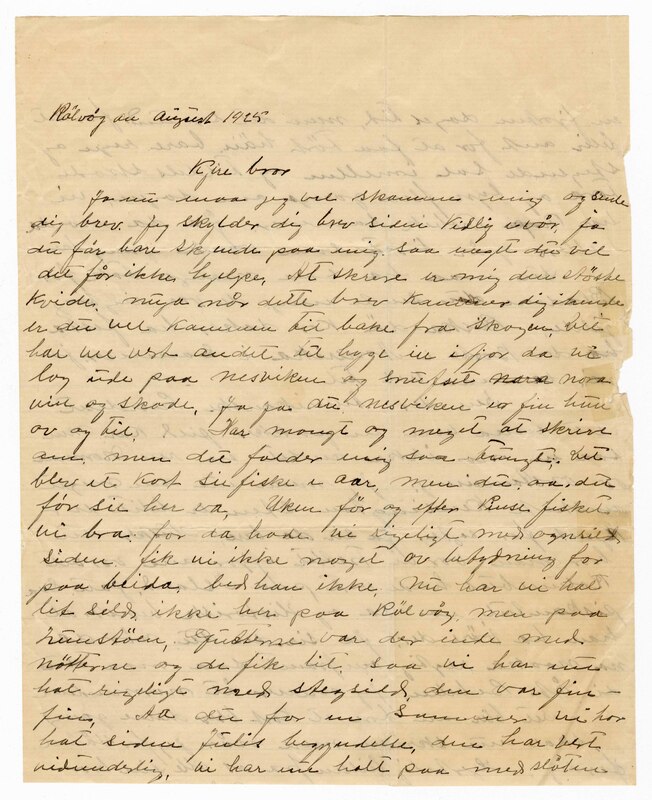 Rölvåg den august 1925
Kjire bror
Ja nu maa jeg vel skamme mig og sende
dig brev. Jeg skylder dig brev siden tidlig i vår, ja
du får bare skjende paa mig saa meget du vil
det får ikke hjelpe. At skrive er mig den störste
kvide, mya når dette brev kommer dig ihende
er du vel kommen tilbake fra skogen. Det
har vel vert andet at ligge in i fjor da vi
log ude paa nesviken og snufset nora
vin og skode. Ja ja du nesviken er fin hun
ov og til. Har mangt og meget at skrive
om men det falder mig saa tungt. Det
blev et kort sei fiske i aar, men du, aa, det
för sei her va. Uken för og efter Ruse fisket
vi bra for da hade vi rigeligt med ognsild
siden fik vi ikke noget ov betydning for
paa beida bed han ikke. Nu har vi hat
let sild, ikke her paa Rölvåg, men paa
var der inde med
nötterne og de fik lit, saa vi har nu
hat rigeligt med stegsild, den var fin
fin, Aa du for en Summer vi har
hat siden julis begyndelse, den har vert
vidunderlig, vi har nu holt paa med slåten